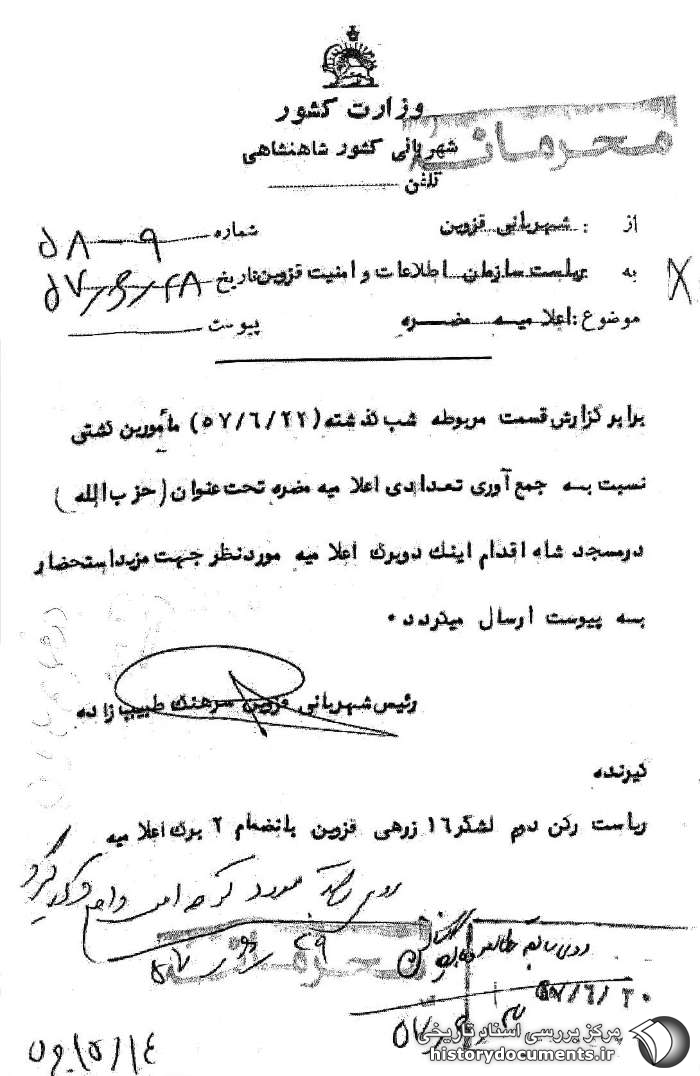 وزارت کشور
محرمانه
شهربانی کشور شاهنشاهی
تلفن
از : شهربانی قزوین
شماره ۹ — ۵۸
به ریاست سازمان اطلاعات و امنیت قزوین
تاریخ ۵۷/۶/۲۸
موضوع : اعلامیه مضره
پیوست
برابر گزارش قسمت مربوطه شب گذشته (۵۷/۶/۲۲) مأمورین گشتی
نسبت به جمع آوری تعدادی اعلامیه مضره تحت عنوان (حزب الله)
درمسجد شاه اقدام اینک دوبرگ اعلامیه موردنظر جهت مزیداستحضار
به پیوست ارسال میگردد .
رئیس شهربانی قزوین سرهنگ طبیب زاده
گیرنده
ریاست رکن دوم لشگر ۱۶ زرهی قزوین بانضمام ۲ برگ اعلامیه
روی
محرمانه
۵۷/۶/۳۰
مرکز بررسی اسناد تاریخی
historydocuments.ir